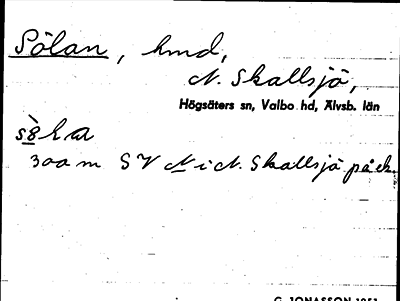 Sölan, hmd,
N. Skallsjö,
Högsäters sn, Valbo hd, Älvsb. län
300 m SV N i N. Skallsjö på ek.
G. JONASSON 1951